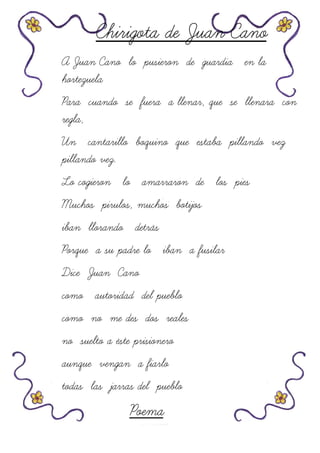 Chirigota de Juan Cano
A Juan Cano lo pusieron de guardia en la
hortezuela
Para cuando se fuera a llenar, que se llenara con
regla,
Un cantarillo boquino que estaba pillando vez
pillando vez.
Lo cogieron lo amarraron de los pies
Muchos pirulos, muchos botijos
iban llorando detrás
Porque a su padre lo iban a fusilar
Dice Juan Cano
como autoridad del pueblo
como no me des dos reales
no suelto a éste prisionero
aunque vengan a fiarlo
todas las jarras del pueblo
Poema